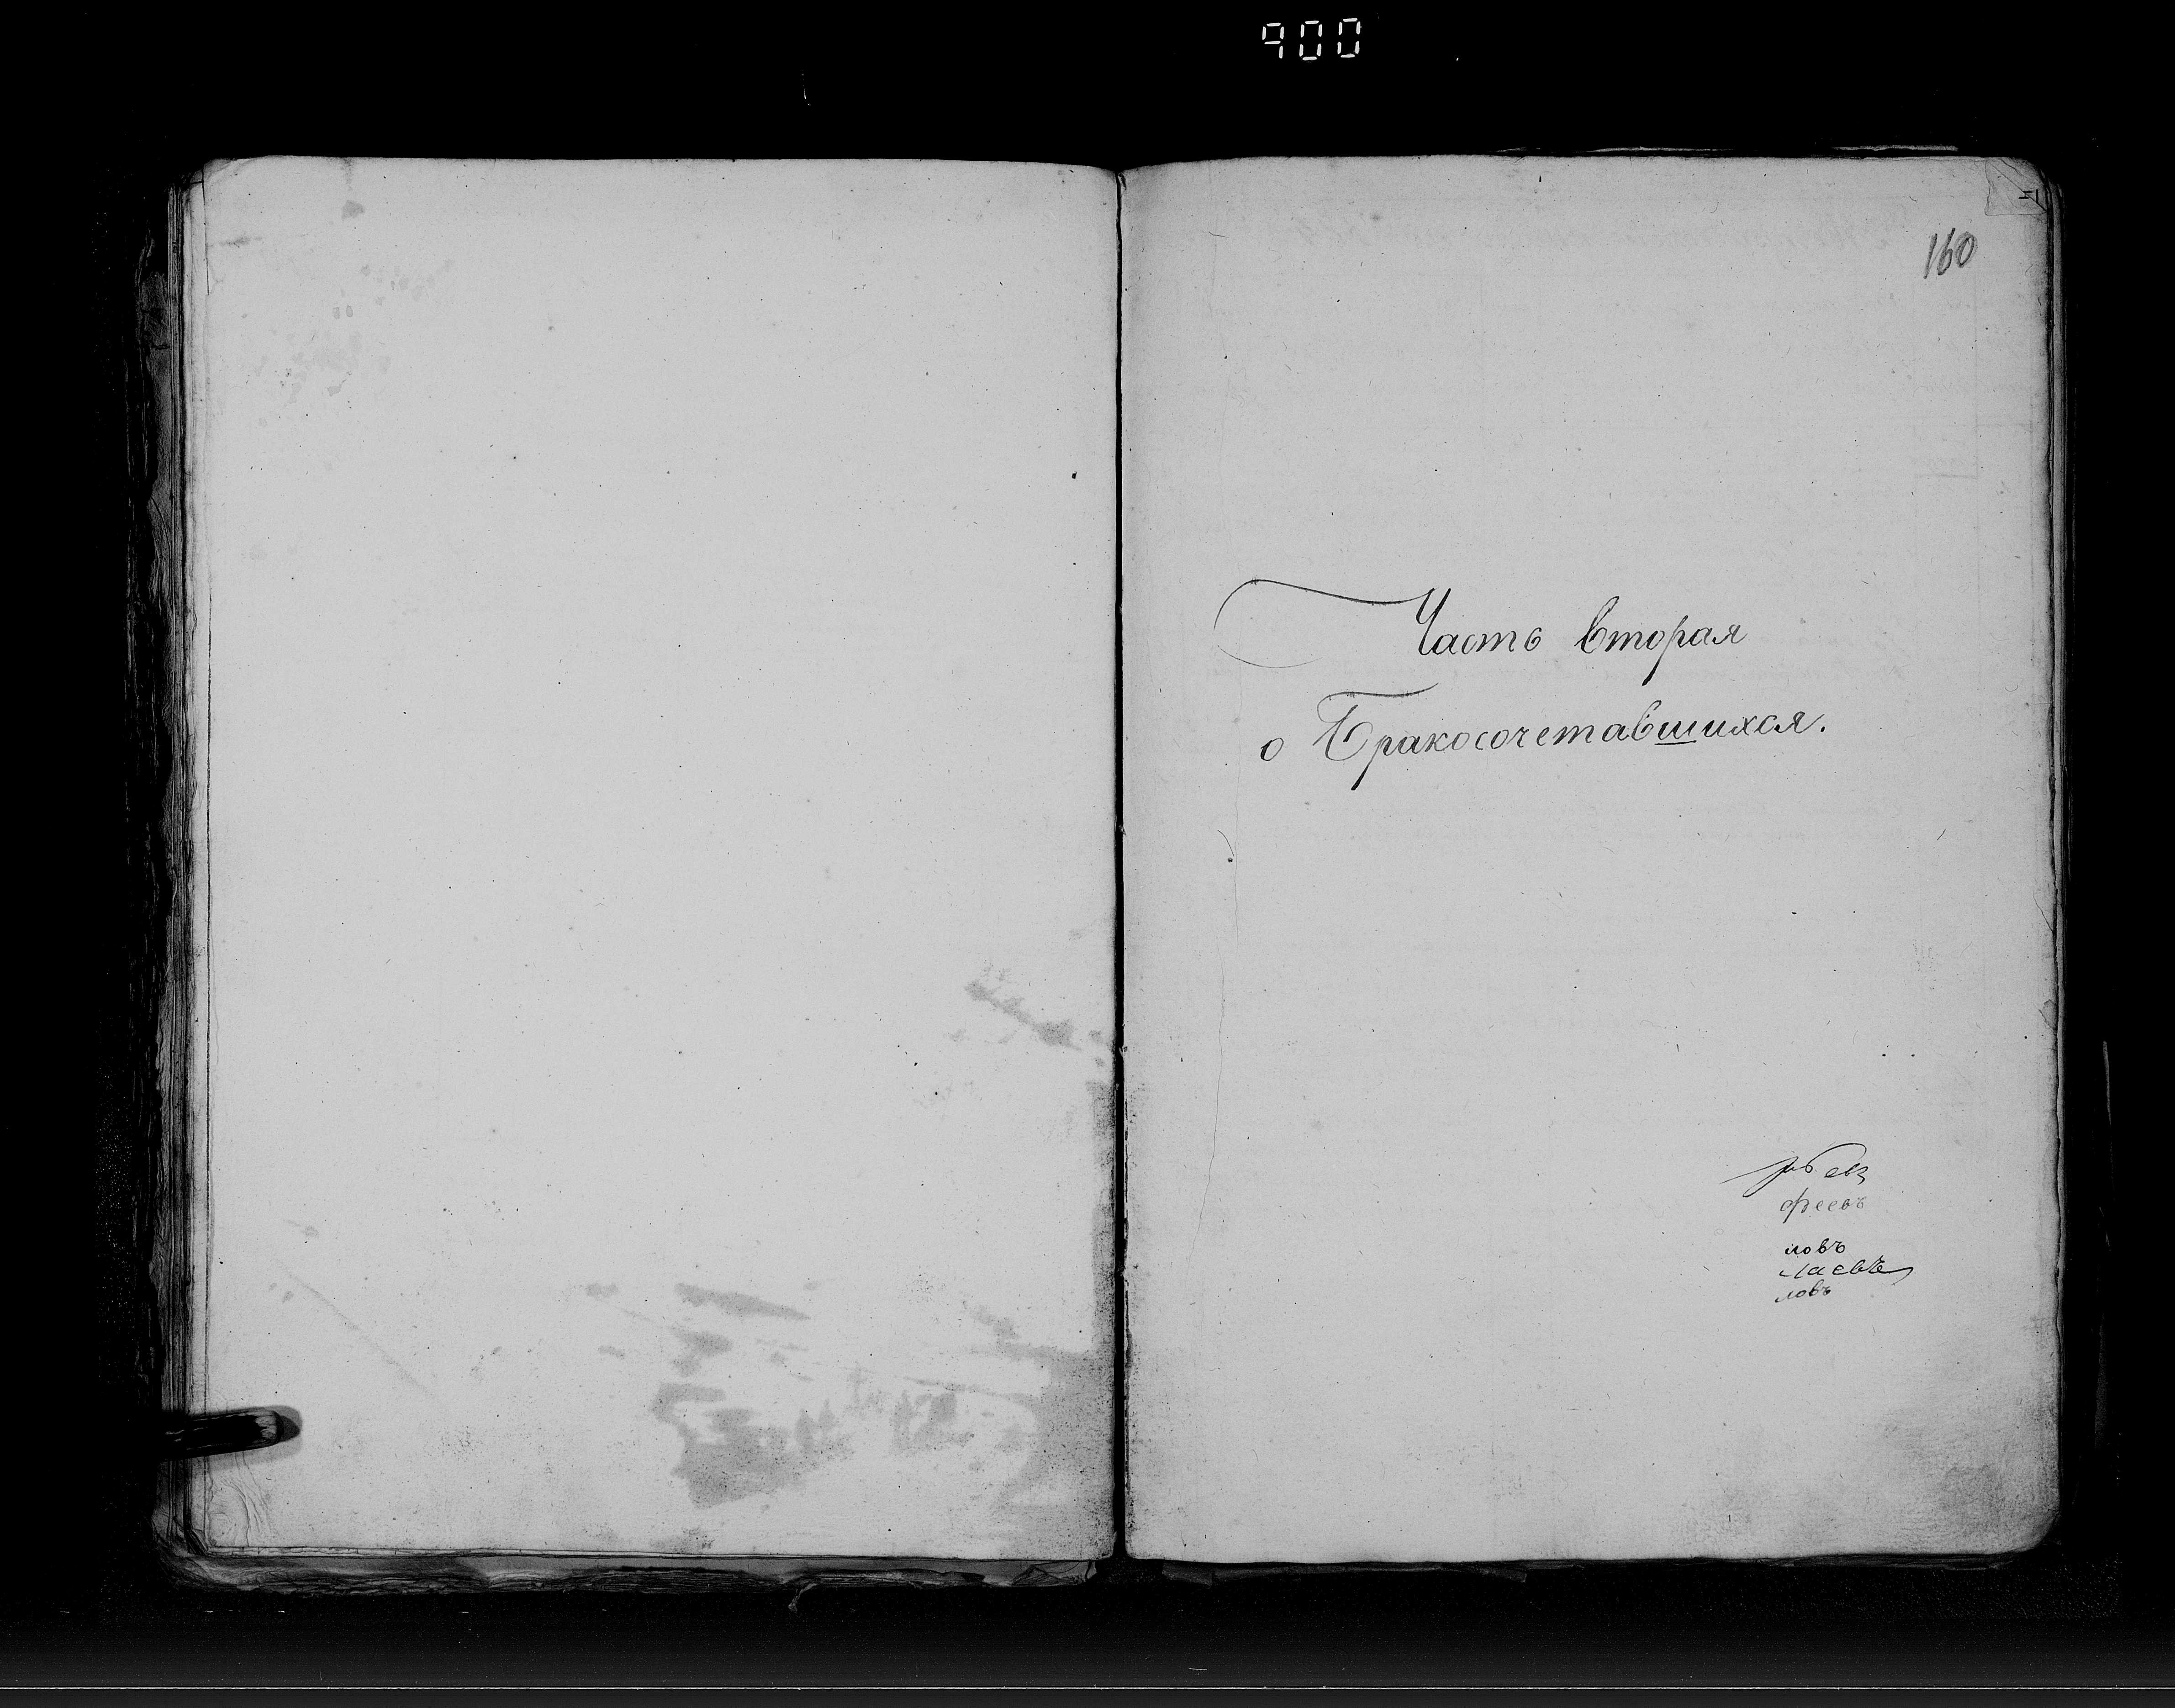 900
160
Часть вторая
о Бракосочетавшихся.
феевъ
ловъ
лаевъ
ловъ